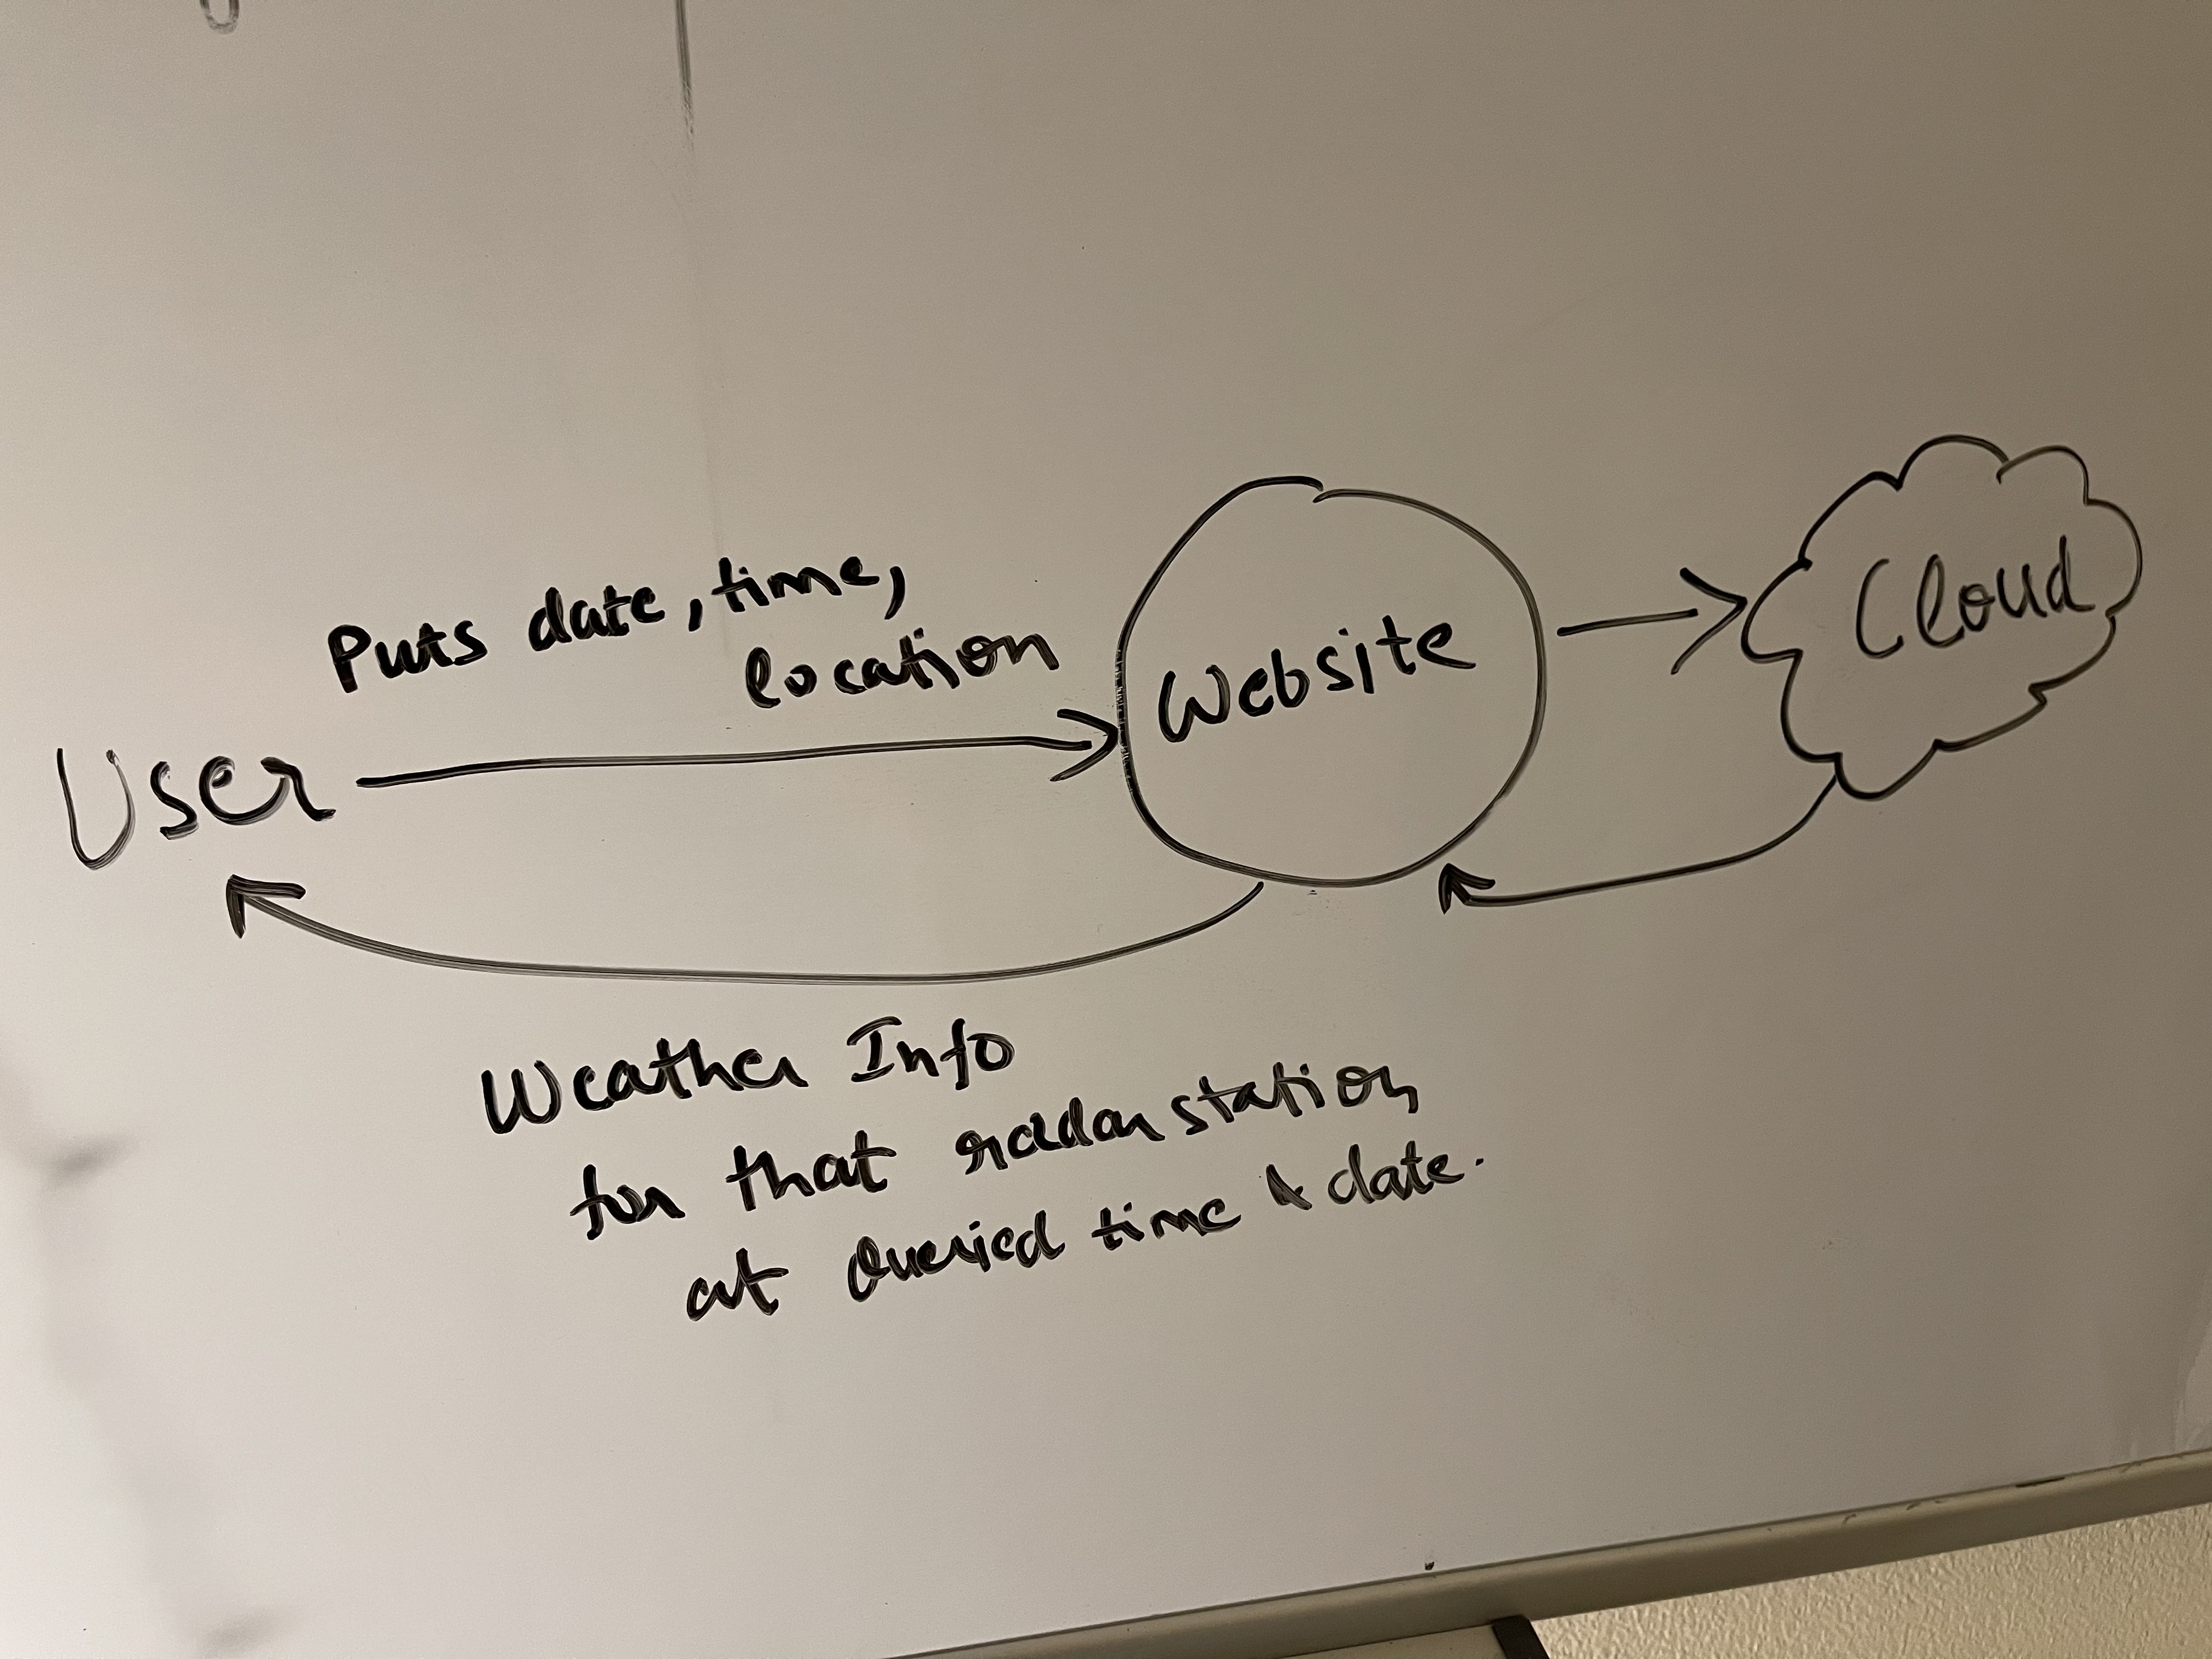 Puts date, time,
location
User
Website
Cloud
Weather Info
for that radar station
at Queried time & date.